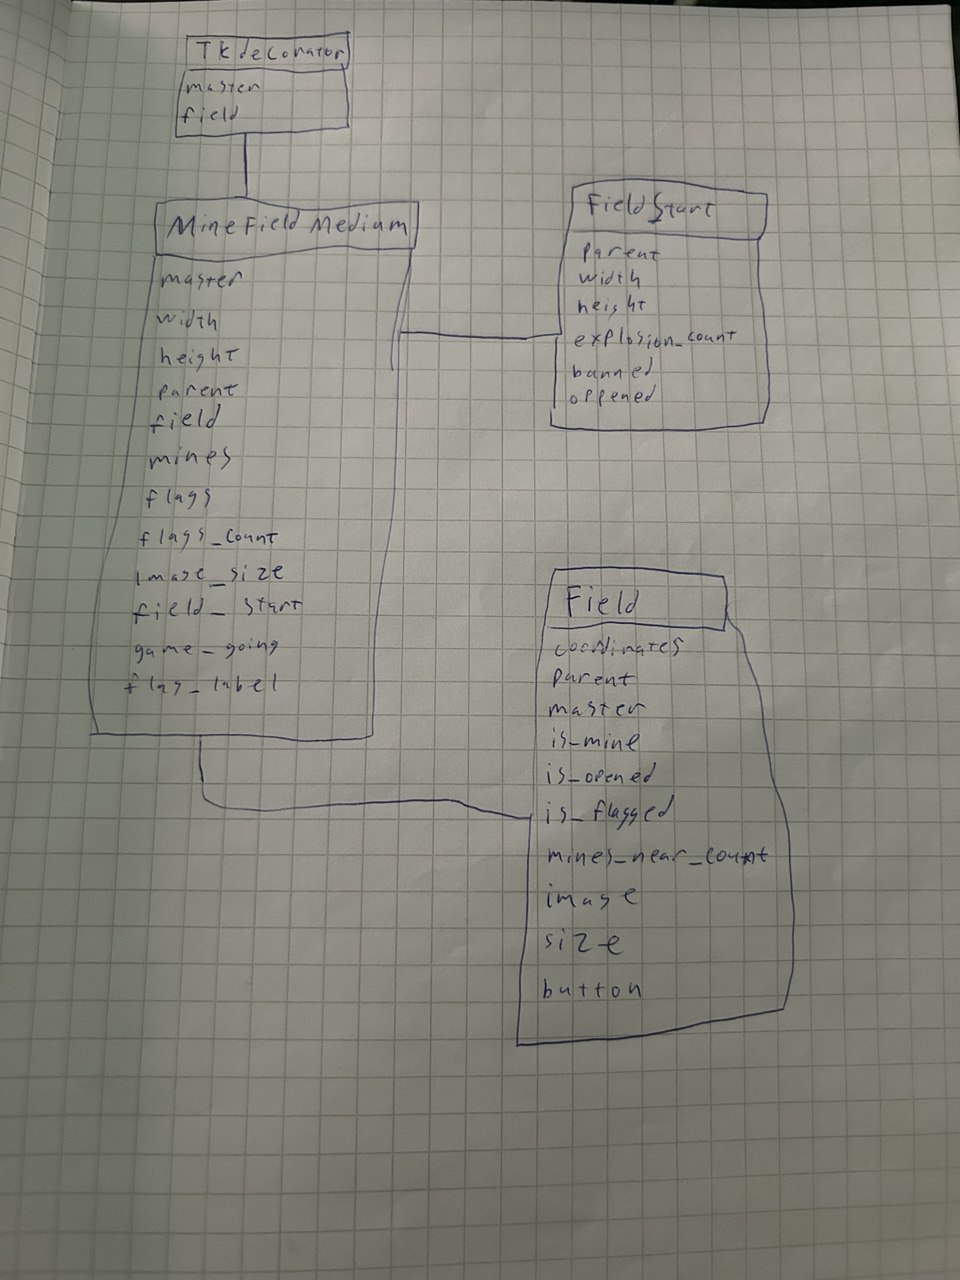 Tkdecorator
master
field
MineField Medium
master
width
height
parent
field
mines
flags
flags_count
image_size
field_start
game_going
flag_label
Field Start
parent
width
height
explosion_count
banned
oppened
Field
coordinates
parent
master
is_mine
is_opened
is_flagged
mines_near_count
image
size
button